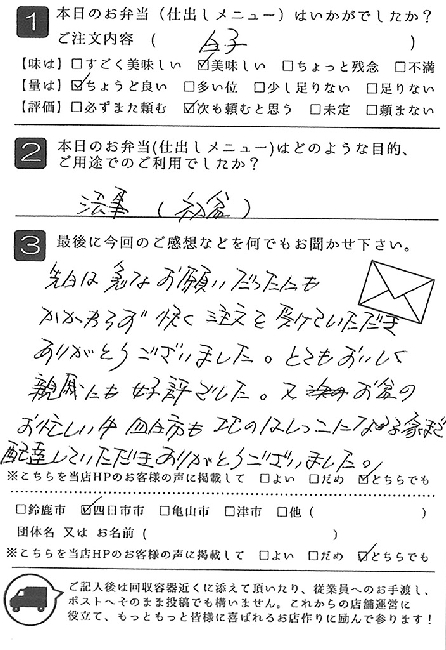 1 本日のお弁当(仕出しメニュー)はいかがでしたか?
ご注文内容 ( 白子 )
【味は】□すごく美味しい ☑美味しい □ちょっと残念 □不満
【量は】☑ちょうど良い □多い位 □少し足りない □足りない
【評価】□必ずまた頼む ☑次も頼むと思う □未定 □頼まない
2 本日のお弁当(仕出しメニュー)はどのような目的、
ご用途でのご利用でしたか?
法事 (初盆)
3 最後に今回のご感想などを何でもお聞かせ下さい。
先日は急なお願いだったにも
かかわらず快く注文を受けていただき
ありがとうございました。とてもおいしく
親戚にも好評でした。又 お盆の
お忙しい中 四日市も 北のはしっこになる家まで
配達していただきありがとうございました。
※こちらを当店HPのお客様の声に掲載して □よい □だめ ☑どちらでも
□鈴鹿市 ☑四日市市 □亀山市 □津市 □他( )
団体名 又は お名前( )
※こちらを当店HPのお客様の声に掲載して □よい □だめ ☑どちらでも
ご記入後は回収容器近くに添えて頂いたり、従業員へのお手渡し、
ポストへそのまま投稿でも構いません。これからの店舗運営に
役立て、もっともっと皆様に喜ばれるお店作りに励んで参ります!